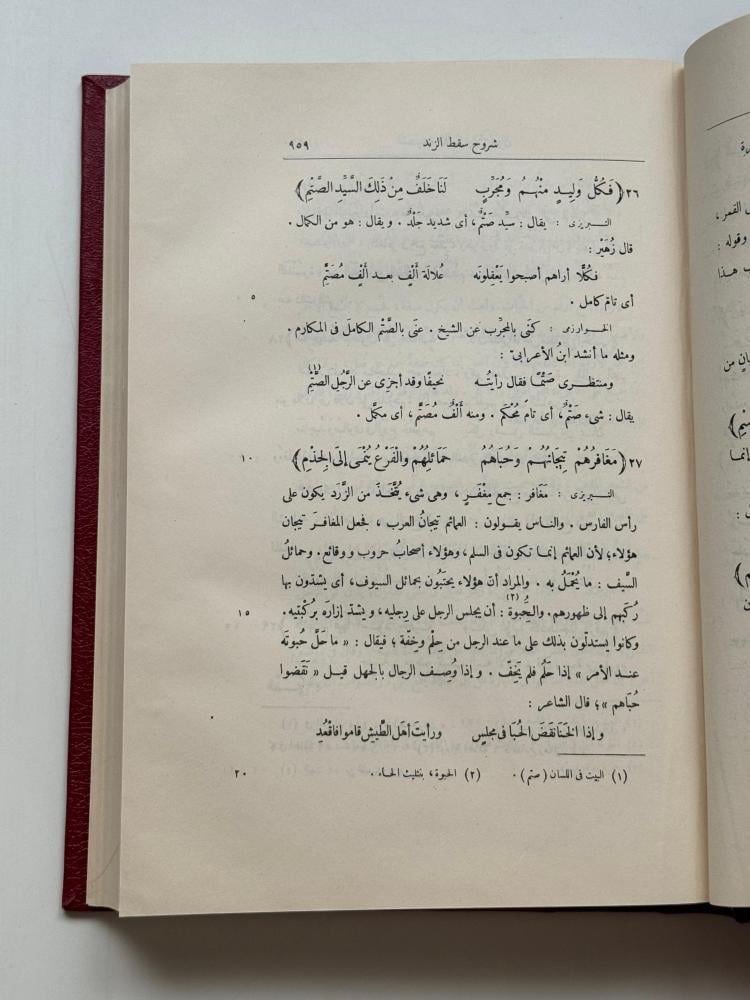 شروح سقط الزند ٩٥٩
٢٦ ﴿فَكُلُّ وَلِيدٍ مِنْهُمُ وَمُجَرَّبٍ لَنَا خَلَفٌ مِنْ ذَلِكَ السَّيِّدِ الصَّتْمِ﴾
التبريزى : يقال : سيِّد صَتْمٌ، أى شديد جَلْدٌ . ويقال : هو من الكمال .
قال زُهَيْر :
فكُلًّا أراهم أصبحوا يَعْقِلونَه عُلالةَ أَلْفٍ بعد ألْفٍ مُصَتَّمِ
أى تامّ كامل . ٥
الخوارزمى : كنَى بالمجرَّب عن الشيخ . عنَى بالصَّتْم الكاملَ فى المكارم .
ومثله ما أنشد ابنُ الأعرابىّ :
ومنتظرى صَتْمًا فقال رأيتُه نحيفًا وقد أجزى عن الرَّجُلِ الصَّتْمِ (١)
يقال : شىء صَتْمٌ، أى تامّ مُحْكَم . ومنه أَلْفٌ مُصَتَّم ، أى مكمَّل .
٢٧ ﴿مَغَافِرُهُمْ تِيجَانُهُمْ وَحُبَاهُمُ حَمَائِلُهُمْ وَالْفَرْعُ يُنْمَى إِلَى الْجِذْمِ﴾ ١٠
التبريزى : مَغافر : جمع مِغْفَرٍ ، وهى شىء يُتَّخَذَ من الزَّرَد يكون على
رأس الفارس . والناس يقولون : العمائم تيجانُ العرب ، فجعل المغافرَ تيجان
هؤلاء؛ لأن العمائم إنما تكون فى السلم، وهؤلاء أصحابُ حروب ووقائع. وحمائلُ
السَّيف : ما يُحْمَلُ به . والمراد أنّ هؤلاء يحتَبُون بحمائل السيوف، أى يشدّون بها
رُكَبهم إلى ظهورهم. والحُِبوة (٢) : أن يجلس الرجل على رجليه، ويشدّ إزارَه برُكْبتيه. ١٥
وكانوا يستدلّون بذلك على ما عند الرجل من حِلْم وخِفّة ؛ فيقال : « ما حَلَّ حُبوتَه
عند الأمر » إذا حَلُم فلم يَخِفّ . وإذا وُصِف الرجال بالجهل قيل « نَقَضوا
حُبَاهم »؛ قال الشاعر :
وإذا الخَنَا نَقَضَ الحُبَا فى مجلسٍ ورأيتَ أهلَ الطَّيشِ قاموا فاقْعُدِ
(١) البيت فى اللسان (صتم) . (٢) الحبوة، بتثليث الحاء . ٢٠